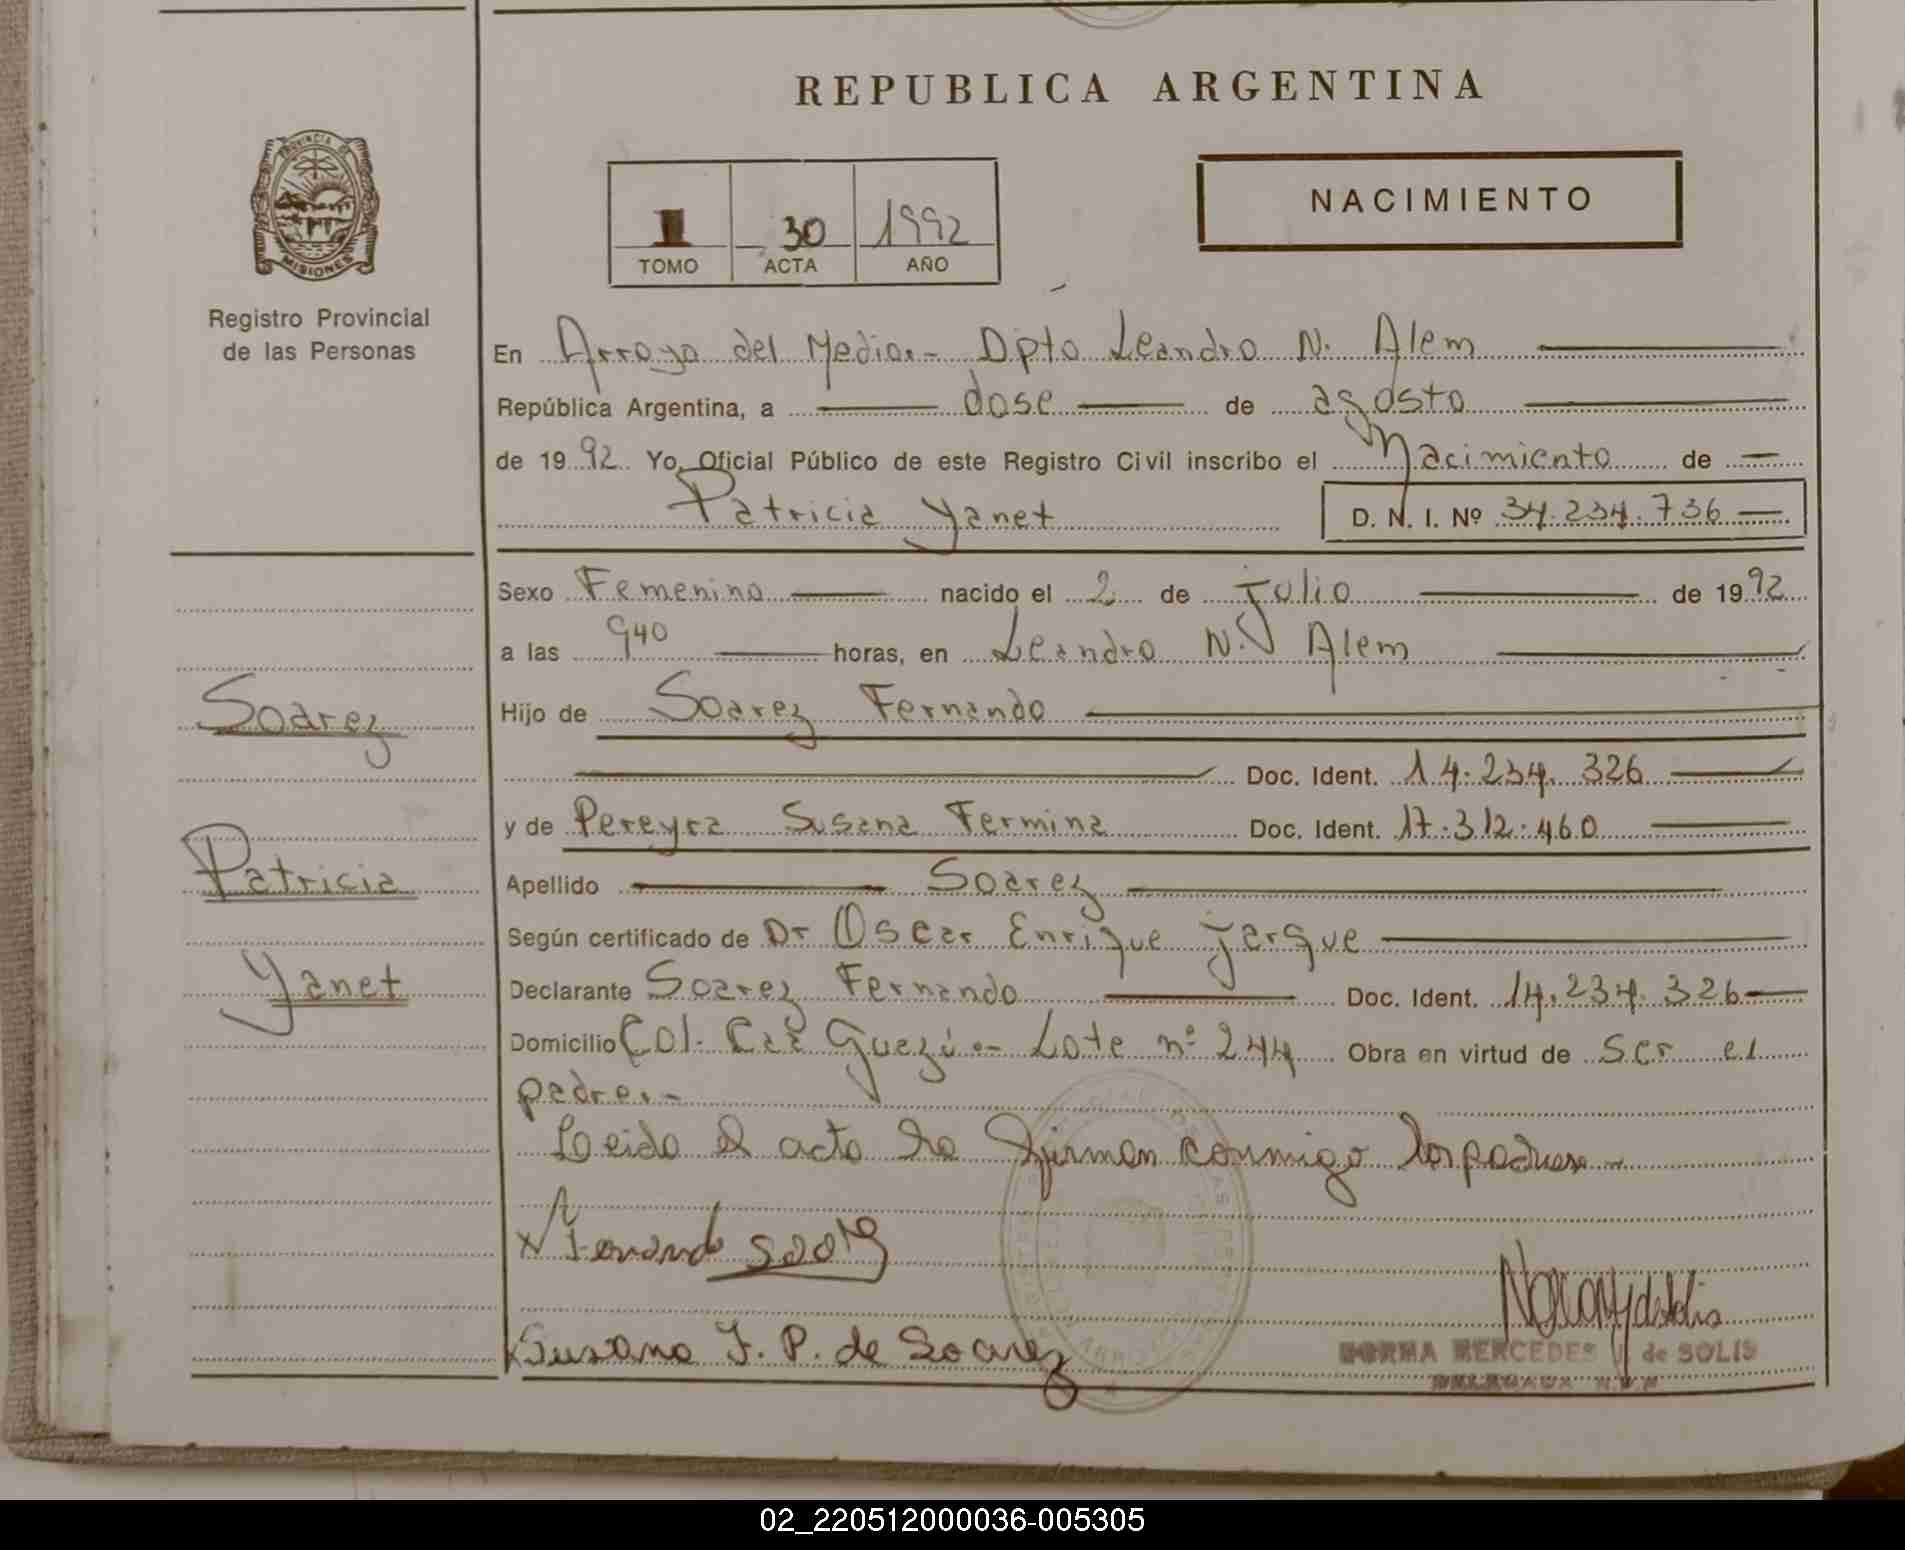 REPUBLICA ARGENTINA
PROVINCIA DE
MISIONES
Registro Provincial
de las Personas
NACIMIENTO
I 30 1992
TOMO ACTA AÑO
En Arroyo del Medio.- Dpto Leandro N. Alem
República Argentina, a dose de agosto
de 1992 Yo, Oficial Público de este Registro Civil inscribo el Nacimiento de
Patricia Yanet D. N. I. Nº 34.234.736
Sexo Femenino nacido el 2 de julio de 1992
a las 940 horas, en Leandro N. Alem
Soarez
Hijo de Soarez Fernando
Doc. Ident. 14.234.326
y de Pereyra Susana Fermina Doc. Ident. 17.312.460
Patricia
Apellido Soarez
Según certificado de Dr Oscar Enrique Jarque
Yanet
Declarante Soarez Fernando Doc. Ident. 14.234.326
Domicilio Col. Caá Guazú.- Lote nº 244 Obra en virtud de ser el
padre.-
Leida el acta la firman conmigo los padres.-
x Fernando
x Susana F. P. de Soarez
NORMA MERCEDES J de SOLIS
02_220512000036-005305